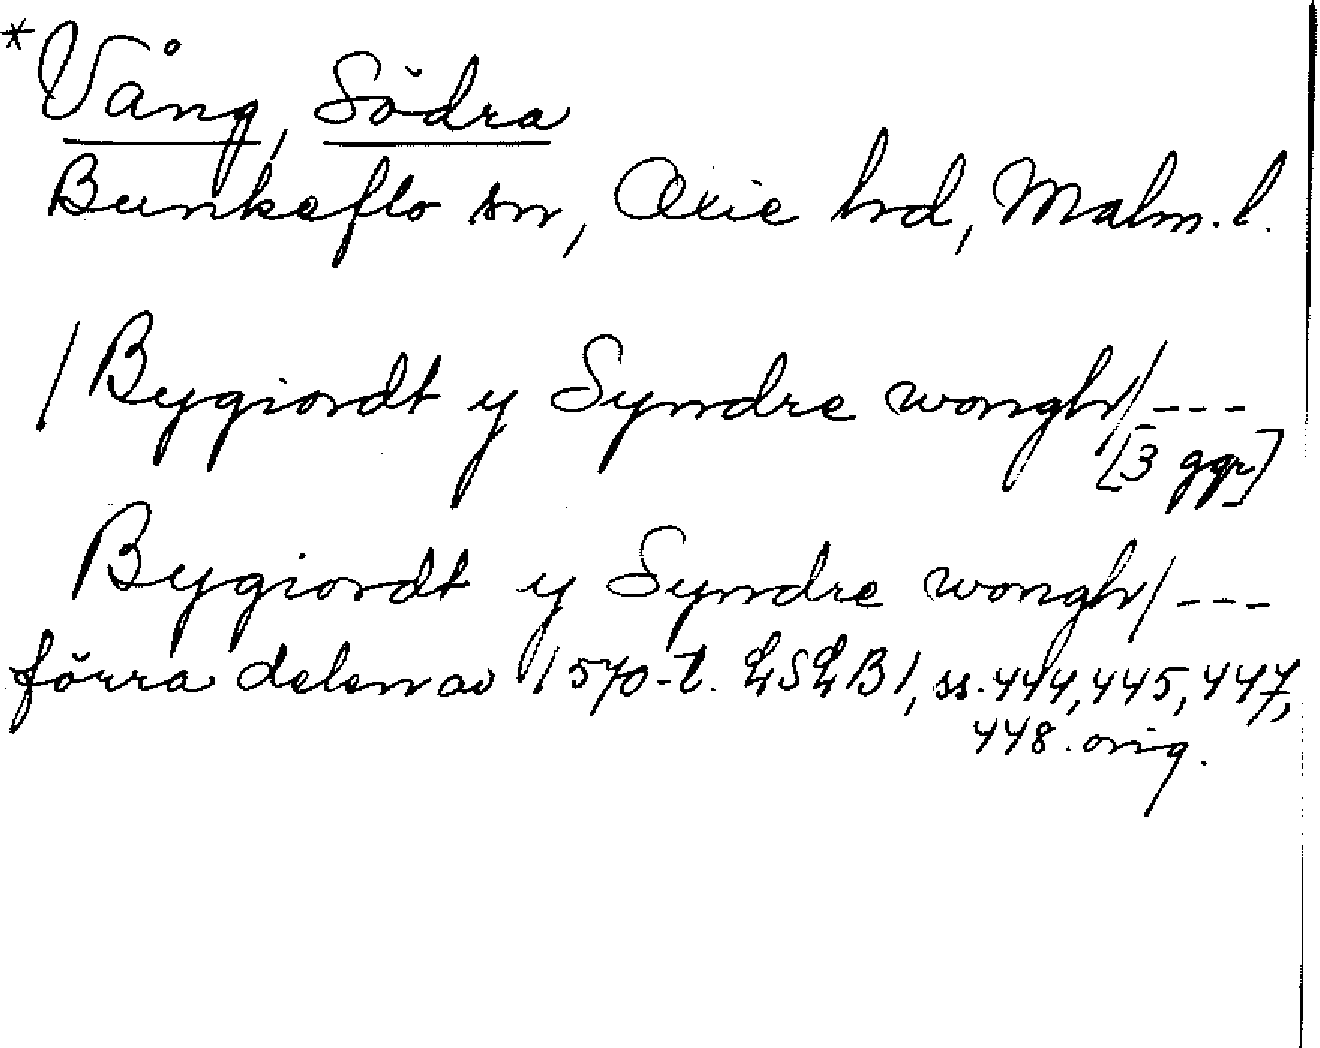 *Vång, Södra
Bunkeflo sn, Oxie hd, Malm. l.
/Bygiordt y Syndre wongh/---
[3 ggr]
Bygiordt y Syndre wongh/---
förra delen av 1570-t. LSLB1, ss. 444, 445, 447,
448. orig.